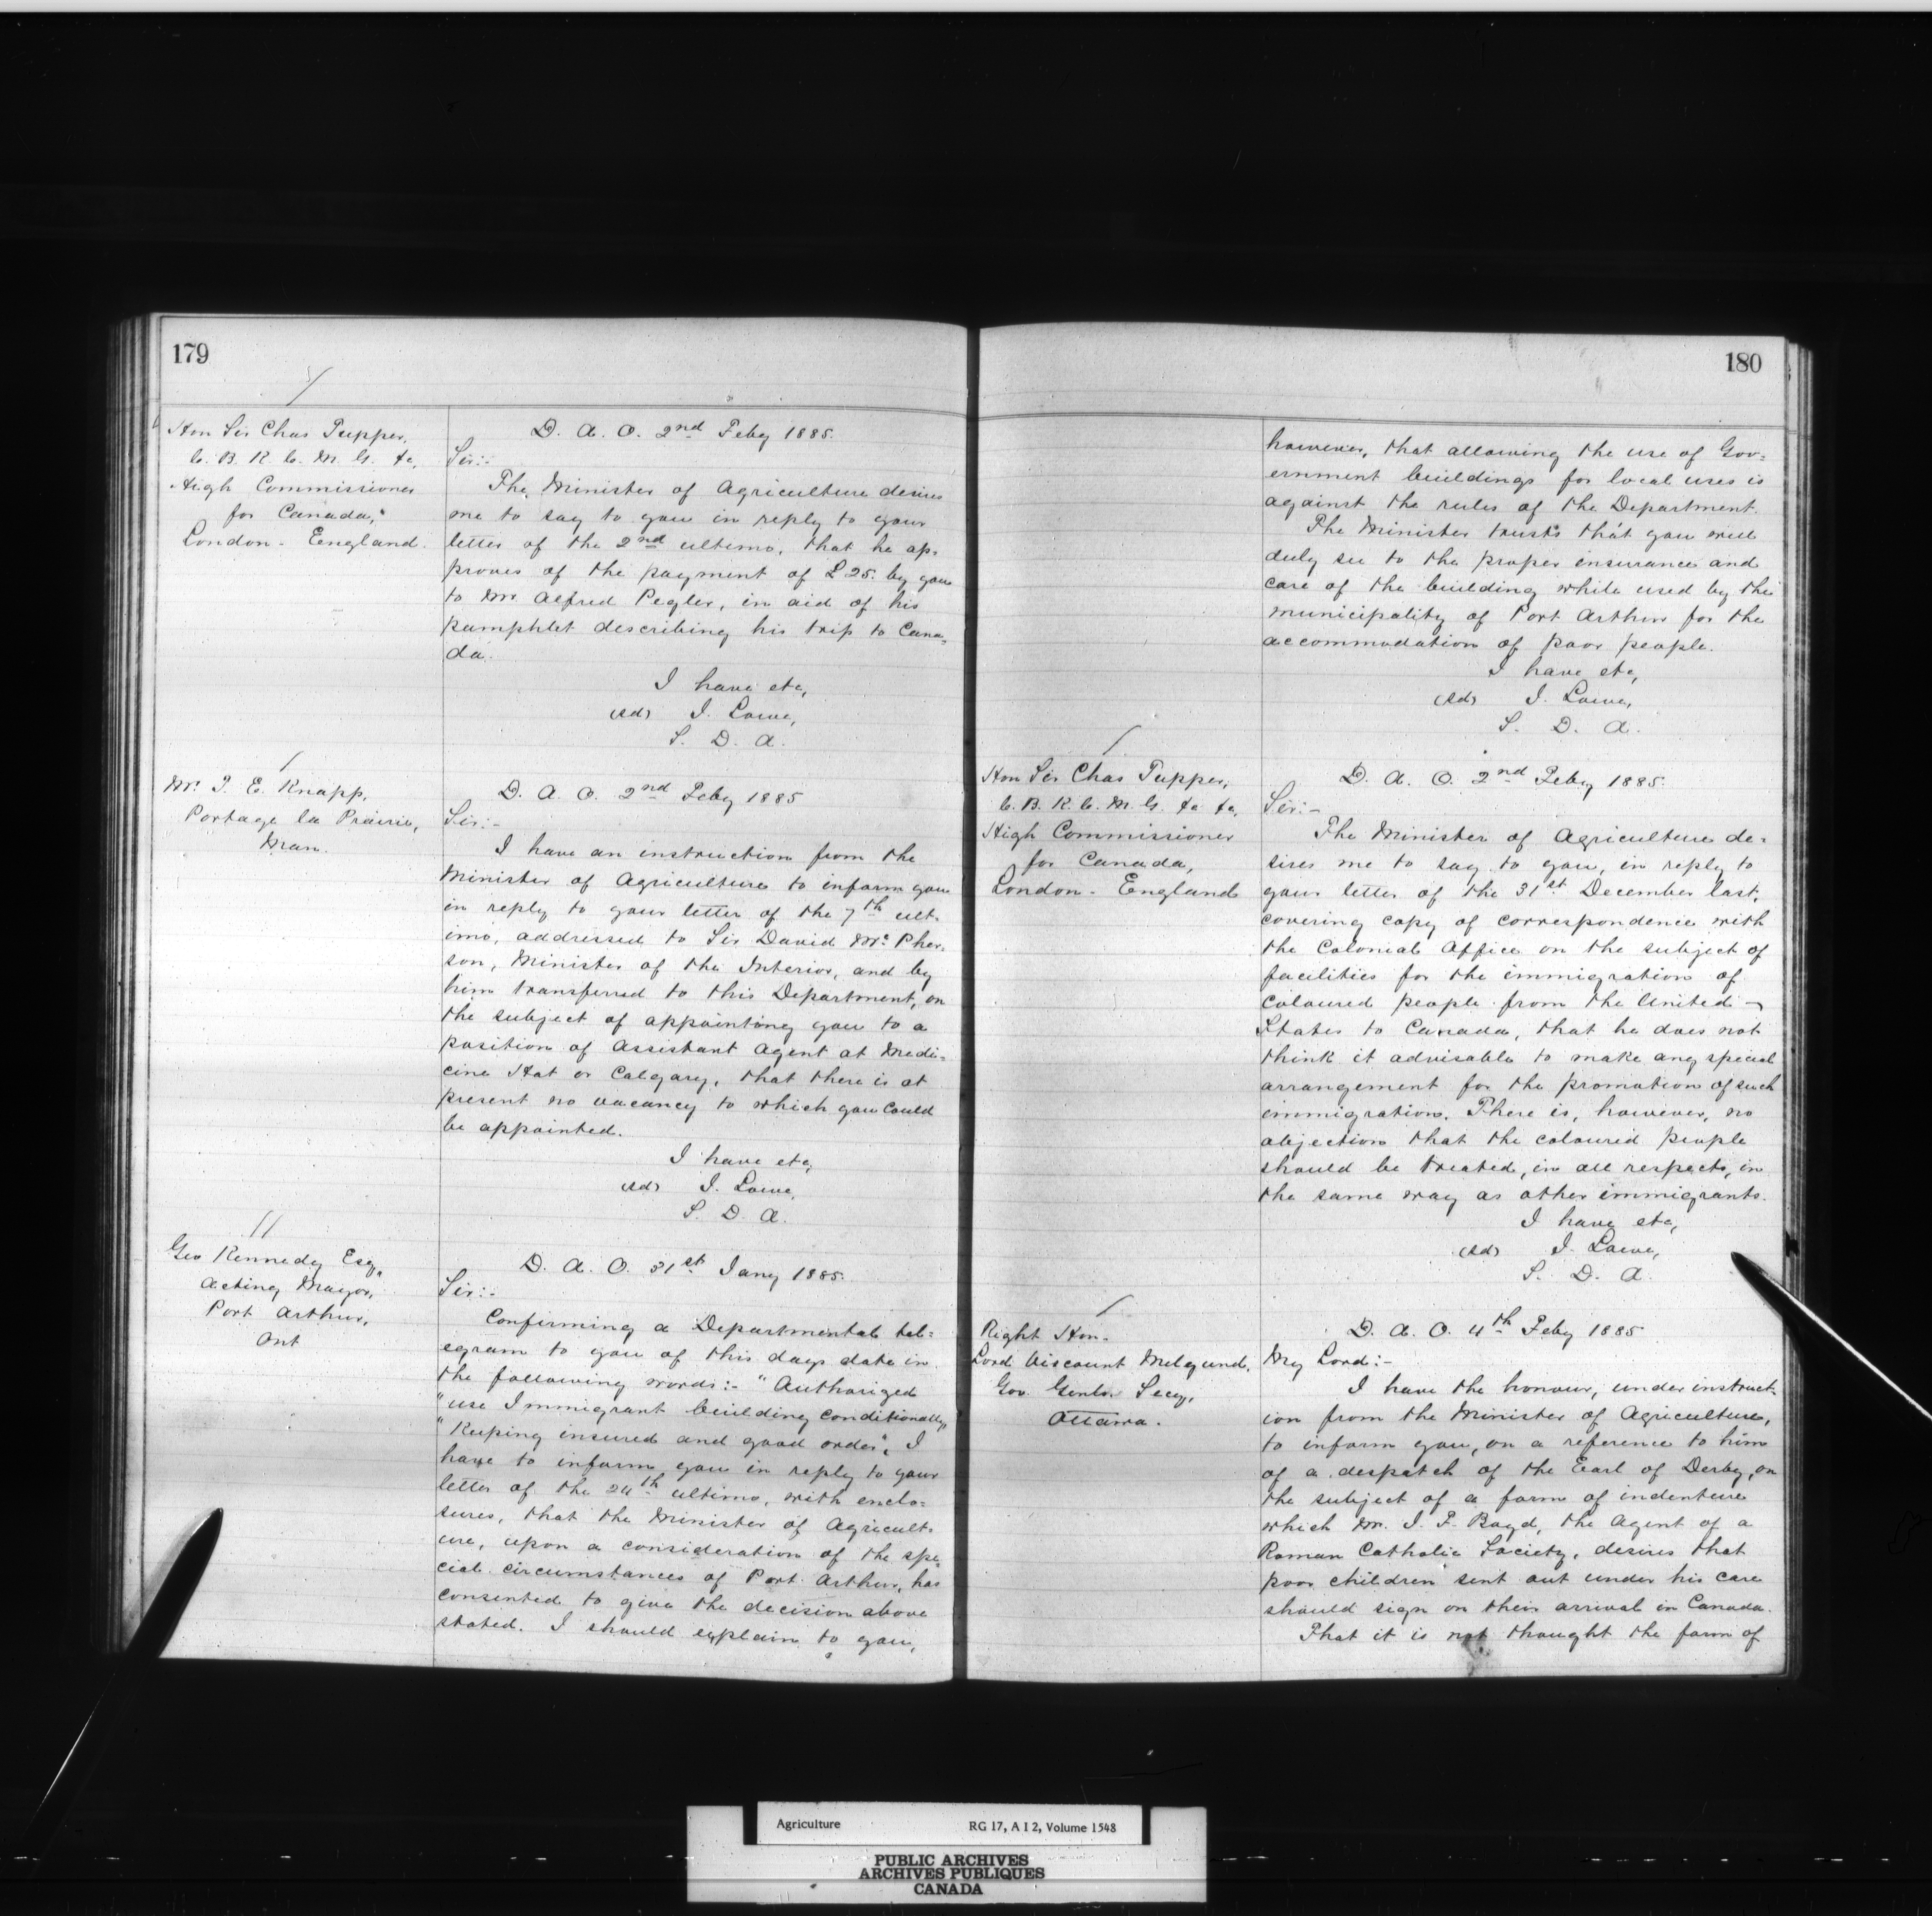 179
Hon Sir Chas Tupper,
C. B. K. C. M. G. &c,
High Commissioner
for Canada,
London - England.
D. A. O. 2nd Feby 1885.
Sir:-
The Minister of Agriculture desires
me to say to you in reply to your
letter of the 2nd ultimo, that he ap-
proves of the payment of £25. by you
to Mr Alfred Pegler, in aid of his
pamphlet describing his trip to Cana-
da.
I have etc,
(sd) J. Lowe,
S. D. A.
Mr. J. E. Knapp,
Portage la Prairie,
Man.
D. A. O. 2nd Feby 1885
Sir:-
I have an instruction from the
Minister of Agriculture to inform you
in reply to your letter of the 7th ult-
imo, addressed to Sir David McPher-
son, Minister of the Interior, and by
him transferred to this Department, on
the subject of appointing you to a
position of Assistant Agent at Medi-
cine Hat or Calgary, that there is at
present no vacancy to which you could
be appointed.
I have etc,
(sd) J. Lowe,
S. D. A.
Geo Kennedy Esq,
Acting Mayor,
Port Arthur,
Ont
D. A. O. 31st Jany 1885.
Sir:-
Confirming a Departmental tel-
egram to you of this days date in
the following words:- "Authorized
"use Immigrant building conditionally,
"Keeping insured and good order", I
have to inform you in reply to your
letter of the 24th ultimo, with enclo-
sures, that the Minister of Agricult-
ure, upon a consideration of the spe-
cial circumstances of Port Arthur, has
consented to give the decision above
stated. I should explain to you,
180
however, that allowing the use of Gov-
ernment buildings for local uses is
against the rules of the Department.
The Minister trusts that you will
duly see to the proper insurance and
care of the building while used by the
municipality of Port Arthur for the
accommodation of poor people.
I have etc,
(sd) J. Lowe,
S. D. A.
Hon Sir Chas Tupper,
C. B. K. C. M. G. &c &c,
High Commissioner
for Canada,
London - England
D. A. O. 2nd Feby 1885.
Sir:-
The Minister of Agriculture de-
sires me to say to you, in reply to
your letter of the 31st December last,
covering copy of correspondence with
the Colonial Office on the subject of
facilities for the immigration of
coloured people from the United
States to Canada, that he does not
think it advisable to make any special
arrangement for the promotion of such
immigration. There is, however, no
objection that the coloured people
should be treated, in all respects, in
the same way as other immigrants.
I have etc,
(sd) J. Lowe,
S. D. A.
Right Hon-
Lord Viscount Melgund,
Gov. Genls. Secy,
Ottawa.
D. A. O. 4th Feby 1885
My Lord:-
I have the honour, under instruct-
ion from the Minister of Agriculture,
to inform you, on a reference to him
of a despatch of the Earl of Derby, on
the subject of a form of indenture
which Mr. J. F. Boyd, the Agent of a
Roman Catholic Society, desires that
poor children sent out under his care
should sign on their arrival in Canada.
That it is not thought the form of
Agriculture RG 17, A I 2, Volume 1548
PUBLIC ARCHIVES
ARCHIVES PUBLIQUES
CANADA